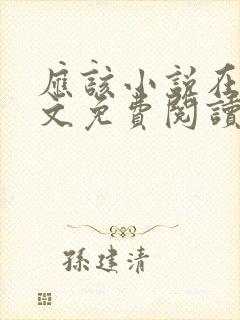 應該小說在
文免費閱讀
孫建清